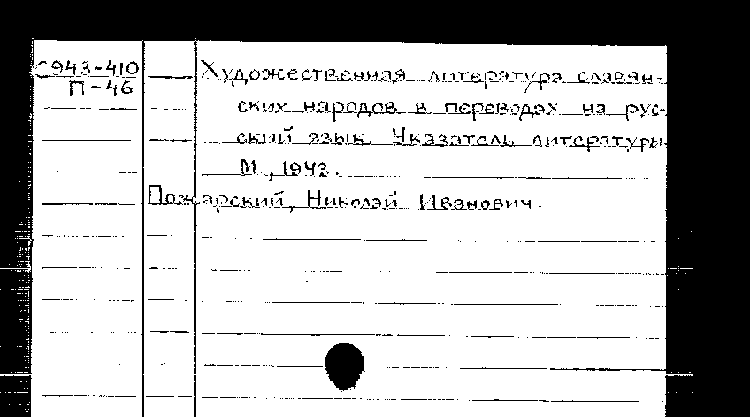 С943-410
П-46
Художественная литература славян-
ских народов в переводах на рус-
ский язык. Указатель литературы.
М., 1942.
Пожарский, Николай Иванович.